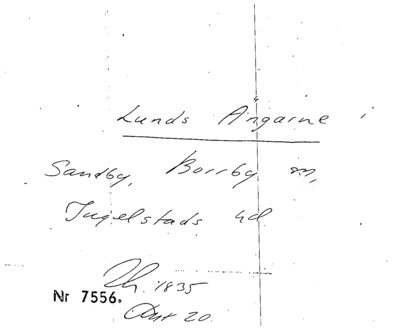 Lunds Ängarne i
Sandby, Borrby sn,
Ingelstads hd
1835
Nr 7556.
20